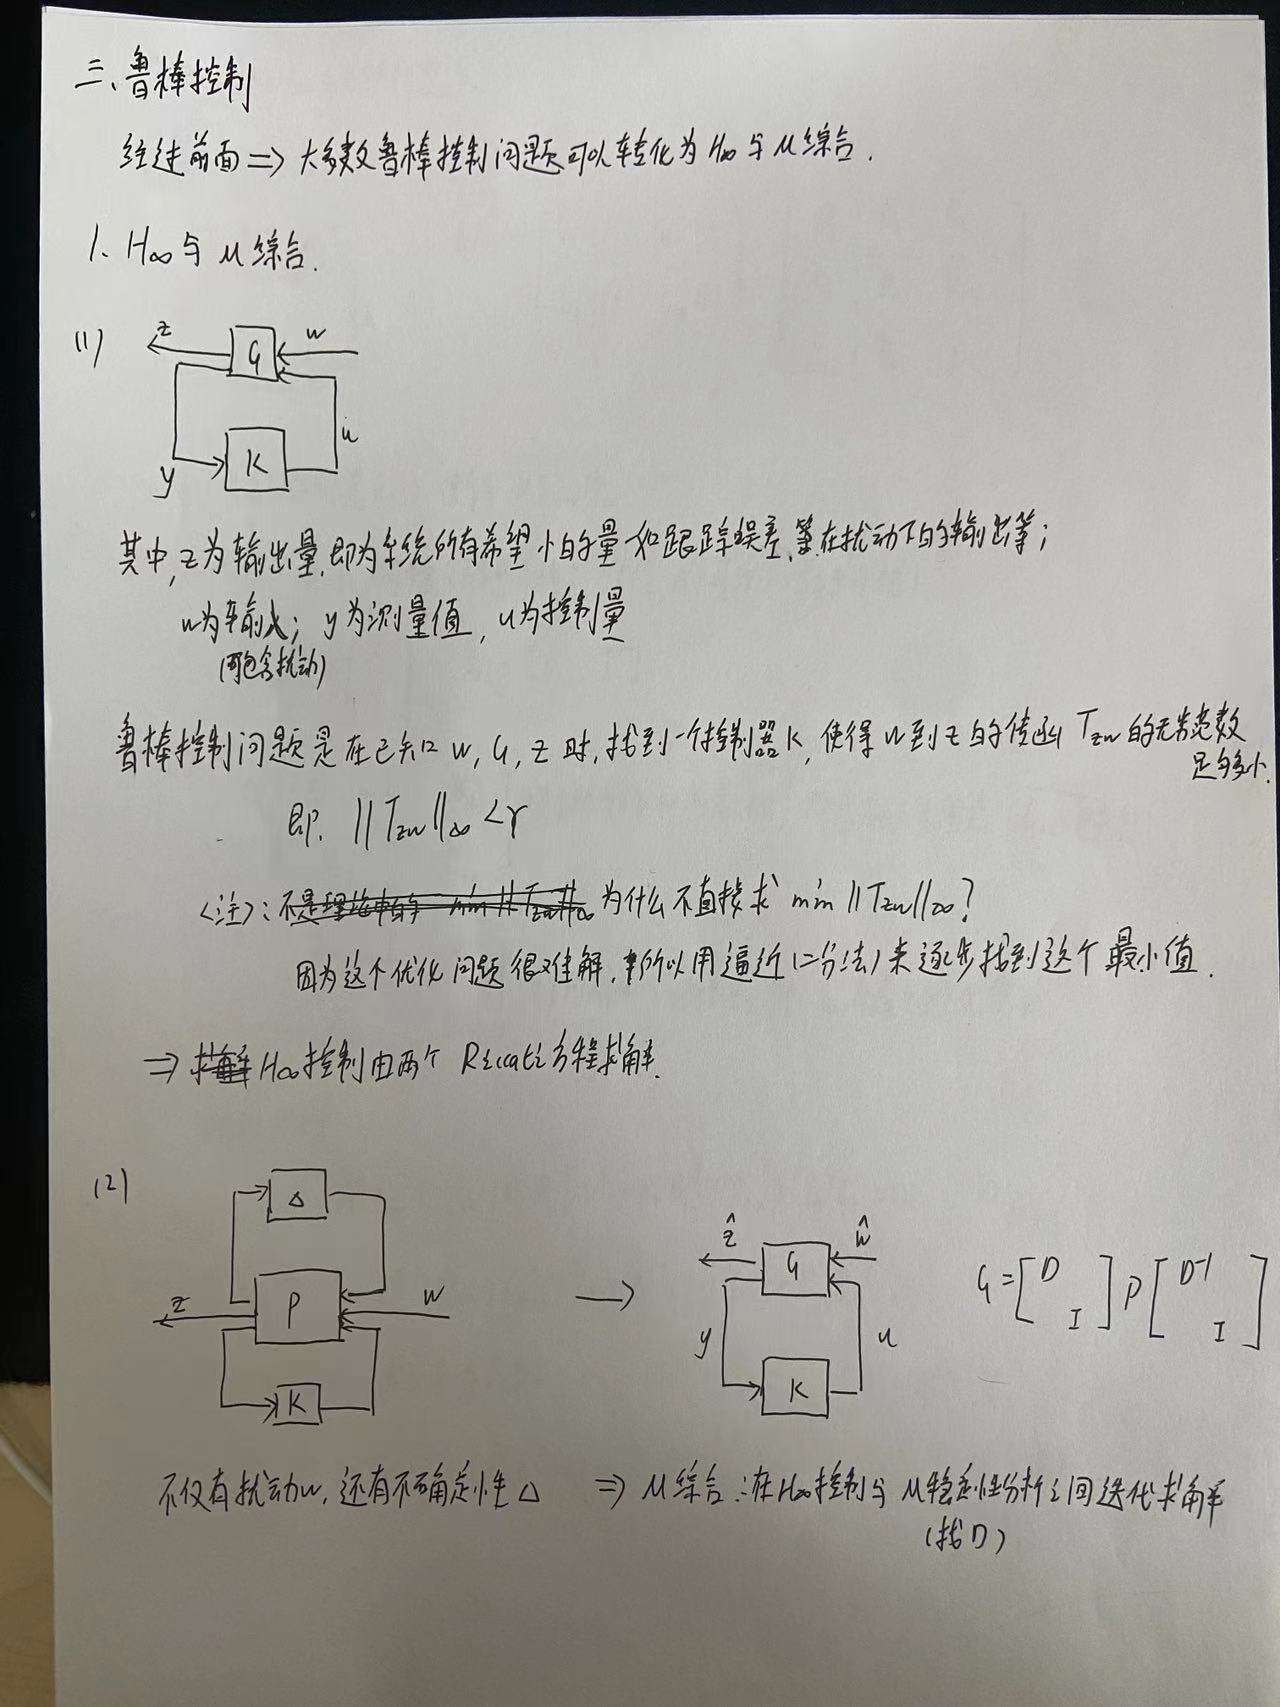 三、鲁棒控制
经过前面 ⇒ 大多数鲁棒控制问题可以转化为 H∞ 与 μ 综合.
1. H∞ 与 μ 综合.
(1)
z G w
u
K
y
其中,z为输出量,即为系统所有希望小的量如跟踪误差、在扰动下的输出等;
w为输入; y为测量值, u为控制量
(可包含扰动)
鲁棒控制问题是在已知 w, G, z 时,找到一个控制器K,使得 w到z的传函 Tzw 的无穷范数
足够小.
即. ||Tzw||∞ < γ
<注>: 为什么不直接求 min ||Tzw||∞?
因为这个优化问题很难解,所以用逼近(二分法)来逐步找到这个最小值.
⇒ H∞控制由两个 Riccati 方程求解.
(2)
Δ
z P w
K
→
ẑ G ŵ
y u
K
G = [D I] P [D⁻¹ I]
不仅有扰动w,还有不确定性Δ ⇒ μ综合:在H∞控制与 μ稳定性分析之间迭代求解
(找D)